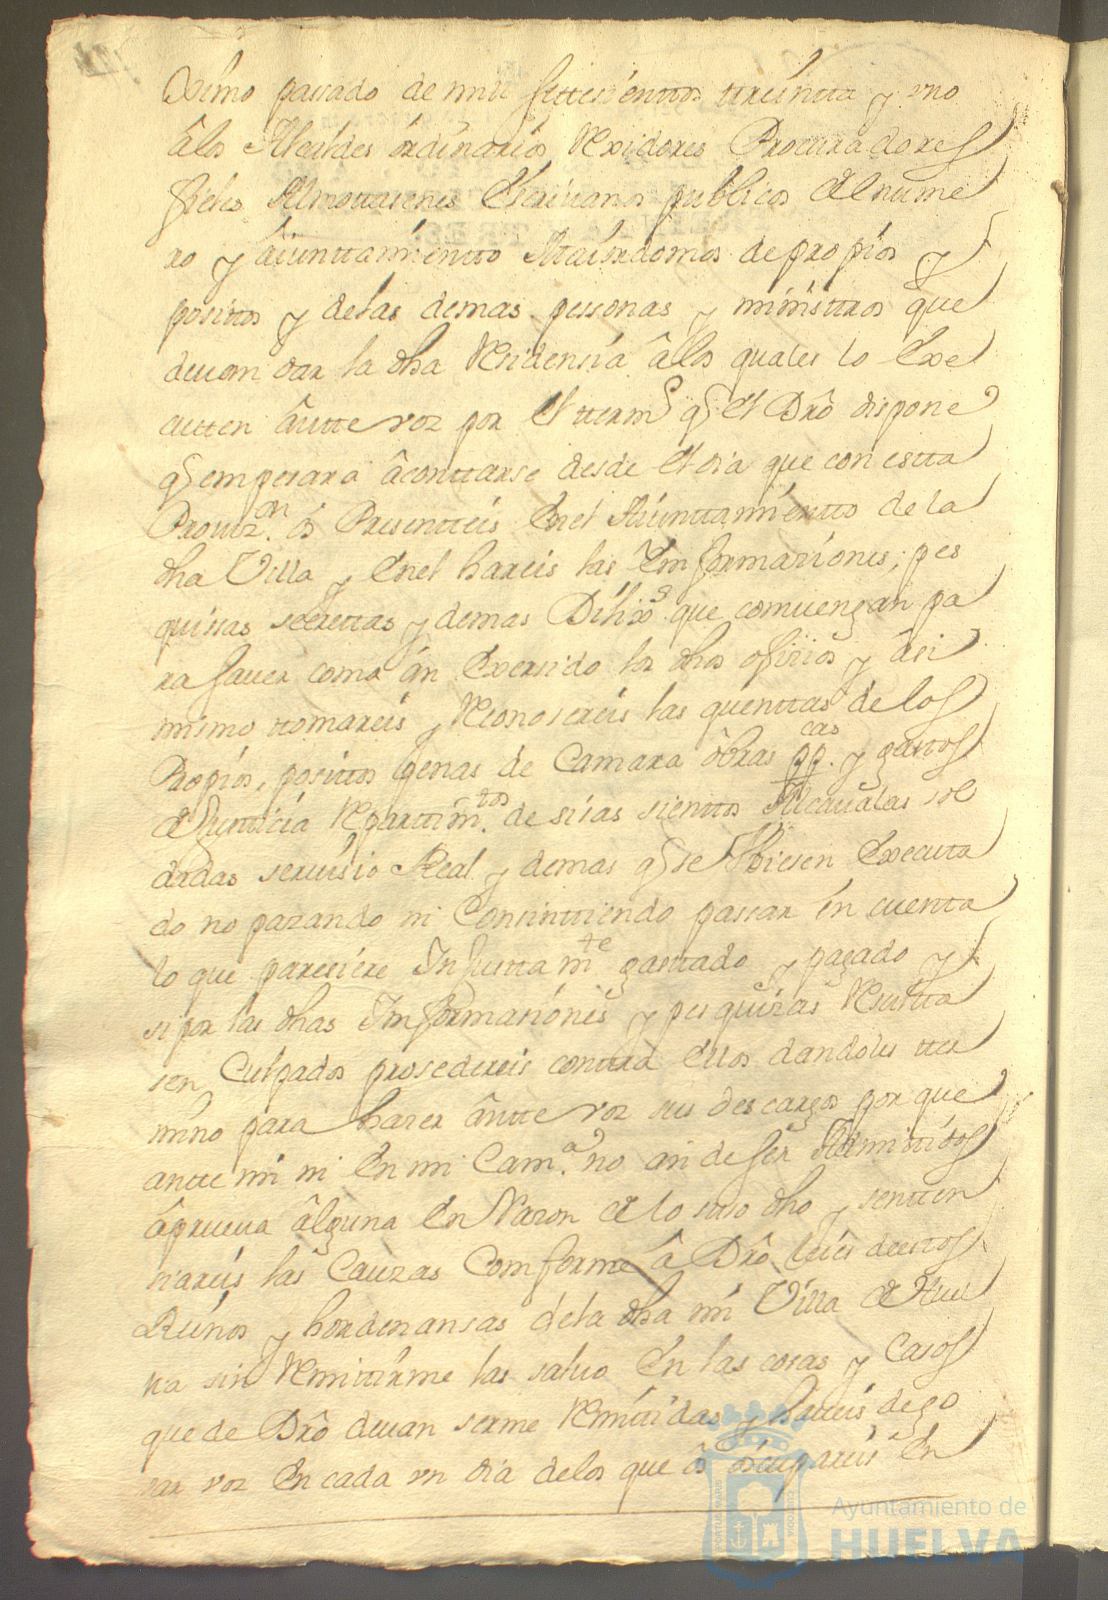 Ximo passado de mill setteçienttos ttreintta y uno
â los Alcaldes ôrdinarios Rexidores Procuradores
fieles Almottasenes Escrivanos publicos del nume
ro y âiunttamientto Maiordomos de propios y
posittos y de las demas personas y ministtros que
devan dar la dha Residensia â los quales lo Exe
cutten ântte vos por el tterm.º q̃ el Drô dispone
q̃ empesara â conttarse desde el dia que con estta
Provis.on ôs Presentteis En el Aiunttamientto de la
dha Villa y En el hareis las Informaziones, pes
quisas secrettas y demas Dilix.s que comvengan pa
ra saver como ân Exersido los dhos ofizios y âsi
mismo ttomareis y Reconosereis las quenttas de los
Propios, posittos penas de Camara ôbras pp.cas y gasttos
de Justticia Reparttim.tos de sisas sienttos Alcavalas sol
dadas servisio Real y demas q̃ se Ubiesen Executa
do no pazando ni Consinttiendo passar en cuenta
lo que paresiere Injustta m.te gasttado y pagado y
si por las dhas Informasiones y pesquisas Resultta
sen Culpados prosedereis conttra Ellos dandoles tter
mino para hazer ântte vos sus descargos por que
antte mi ni En mi Cam.a no an de ser Admittidos
â prueva âlguna En Razon de lo suso dho y senten
siareis las Cauzas Comforme â Drô leies de estos
Reinos y hordenansas de la dha mi Villa de Huel
va sin Remittirme las salvo En las cosas y Casos
que de Drô devan serme Remitidas y haveis de go
sar vos En cada un dia de los que ôs ôcupareis En
Ayuntamiento de
HUELVA